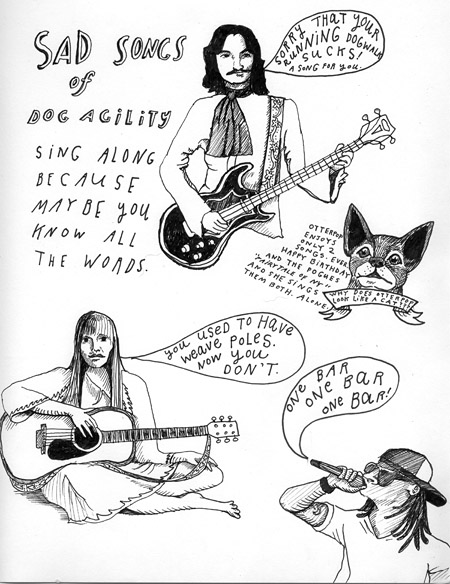 SAD SONGS
of
DOG AGILITY
SING ALONG
BECAUSE
MAYBE YOU
KNOW ALL
THE WORDS.
SORRY THAT YOUR
RUNNING DOGWALK
SUCKS!
A SONG FOR YOU.
OTTERPOP
ENJOYS
ONLY 2
SONGS. EVER.
HAPPY BIRTHDAY
AND THE POGUES
"FAIRYTALE OF NY"
AND SHE SINGS
THEM BOTH. ALONE.
WHY DOES OTTERPOP
LOOK LIKE A CAT?!
YOU USED TO HAVE
WEAVE POLES.
NOW YOU
DON'T.
ONE BAR
ONE BAR
ONE BAR!